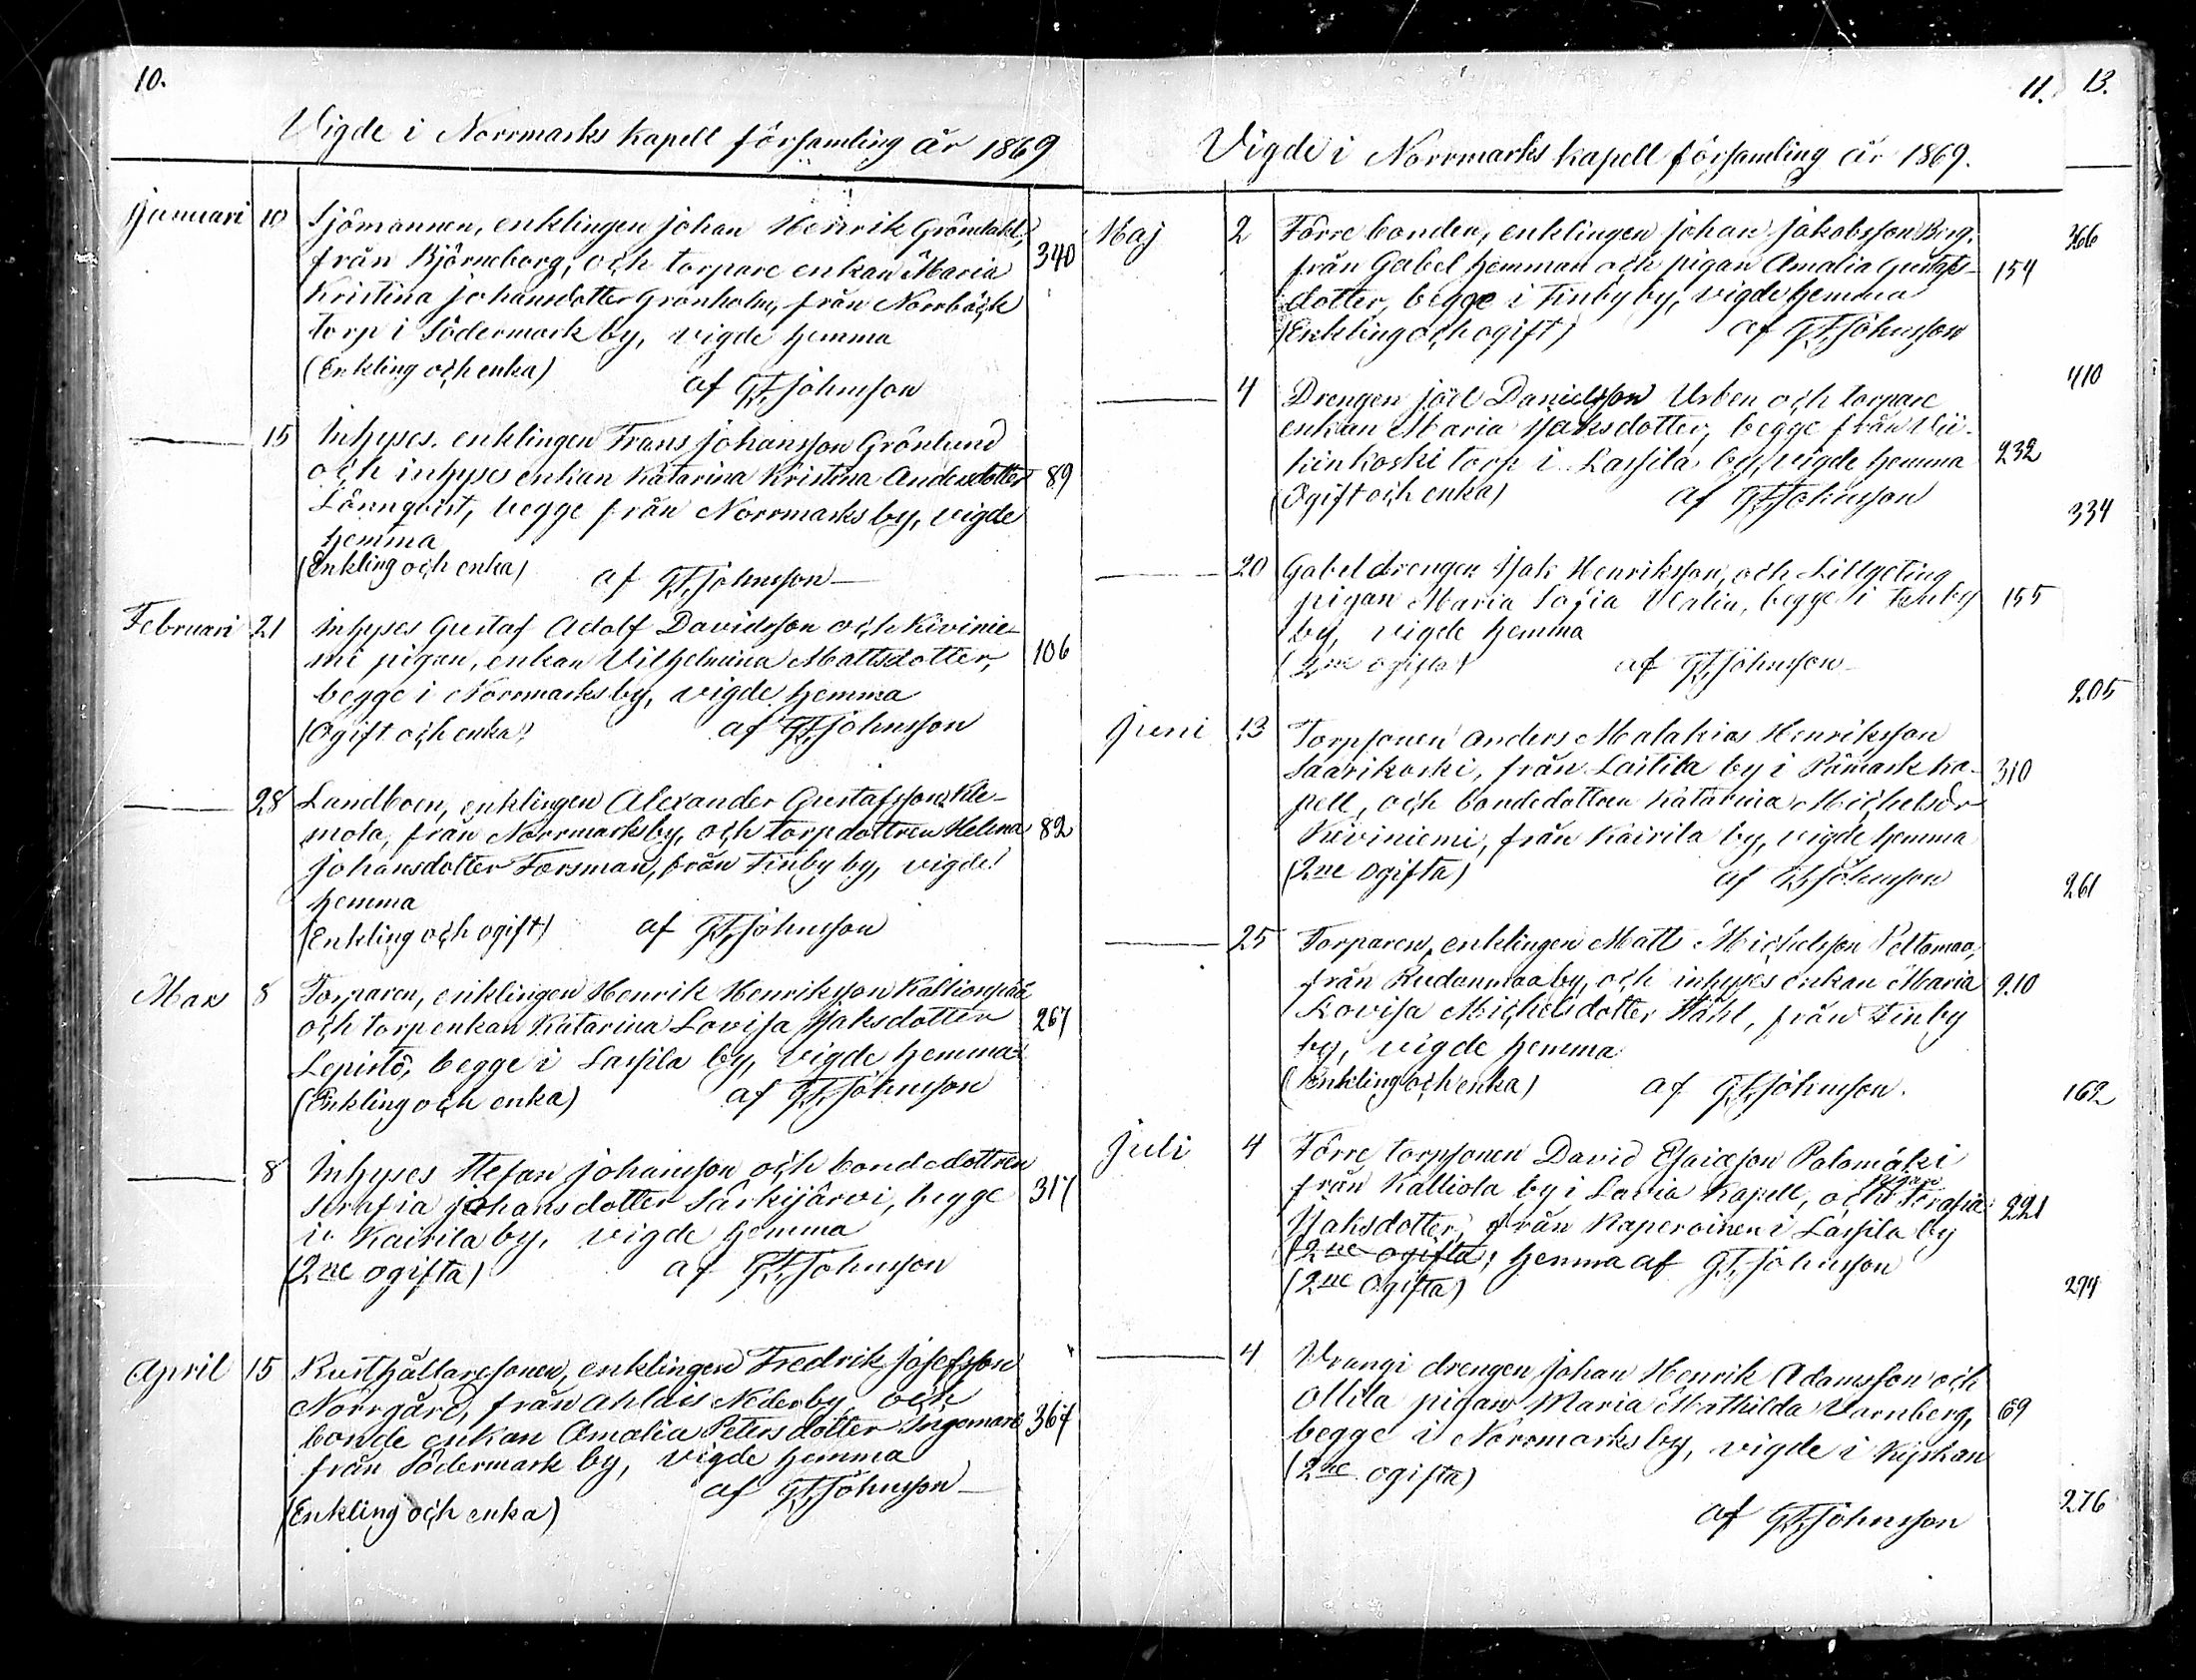 10.
Vigde i Norrmarks kapell församling år 1869
Januari 10 Sjömannen, enklingen Johan Henrik Gröndahl,
från Björneborg, och torpare enkan Maria 340
Kristina Johansdotter Grönholm, från Norrbäck
torp i Södermark by, vigde hemma
(Enkling och enka) af G.F. Johnsson
15 Inhyses, enklingen Frans Johansson Grönlund
och inhyses enkan Katarina Kristina Andersdotter 89
Lönnqvist, begge från Norrmarks by, vigde
hemma
(Enkling och enka) af G.F. Johnsson
Februari 21 Inhyses Gustaf Adolf Davidsson och Kivinie-
mi pigan, enkan Vilhelmina Mattsdotter, 106
begge i Norrmarks by, vigde hemma
(Ogift och enka) af G.F. Johnsson
28 Landboen, enklingen Alexander Gustafsson Kle-
mola, från Norrmarks by, och torpdottren Helena 82
Johansdotter Forsman, från Finby by, vigde
hemma
(Enkling och ogift) af G.F. Johnsson
Mars 8 Torparen, enklingen Henrik Henriksson Kallionpää
och torpenkan Katarina Lovisa Isaksdotter 267
Lepistö, begge i Lassila by, vigde hemma
(Enkling och enka) af G.F. Johnsson
8 Inhyses Stefan Johansson och bondedottren
Serafia Johansdotter Särkijärvi, begge 317
i Kairila by, vigde hemma
(2ne ogifta) af G.F. Johnsson
April 15 Rusthållaresonen, enklingen Fredrik Josefsson
Norrgård, från Ahlais Nederby, och
bonde enkan Amalia Petersdotter Ingomars 367
från Södermark by, vigde hemma
af G.F. Johnsson
(Enkling och enka)
11.
Vigde i Norrmarks kapell församling år 1869.
Maj 2 Förre bonden, enklingen Johan Jakobsson Berg,
från Gabel hemman och pigan Amalia Gustafs- 154
dotter, begge i Finby by, vigde hemma
(Enkling och ogift) af G.F. Johnsson
4 Drengen Joel Danielsson Urben och torpare
enkan Maria Isaksdotter, begge från Mii-
kinkoski torp i Lassila by, vigde hemma 232
(Ogift och enka) af G.F. Johnsson
20 Gabel drengen Isak Henriksson, och Lillgeting
pigan Maria Sofia Malin, begge i Finby 155
by, vigde hemma
(2ne ogifta) af G.F. Johnsson
Juni 13 Torpsonen Anders Malakias Henriksson
Saarikoski, från Laitila by i Påmark ka- 310
pell, och bondedottren Katarina Michelsdr
Kiviniemi, från Kairila by, vigde hemma
(2ne ogifta) af G.F. Johnsson
25 Torparen, enklingen Matt Michelsson Peltomaa,
från Rudanmaa by, och inhyses enkan Maria 210
Lovisa Michelsdotter Ståhl, från Finby
by, vigde hemma
(Enkling och enka) af G.F. Johnsson.
Juli 4 Förre torpsonen David Esaiasson Palomäki
från Kalliola by i Lavia Kapell, och pigan Serafia 221
Isaksdotter, från Raperoinen i Lassila by
(2ne ogifta; hemma af G.F. Johnsson
(2ne Ogifta)
4 Vrangi drengen Johan Henrik Adamsson och
Ollila pigan Maria Mathilda Varnberg, 69
begge i Norrmarks by, vigde i Kyrkan
(2ne ogifta)
af G.F. Johnsson
13.
366
410
334
205
261
162
294
276